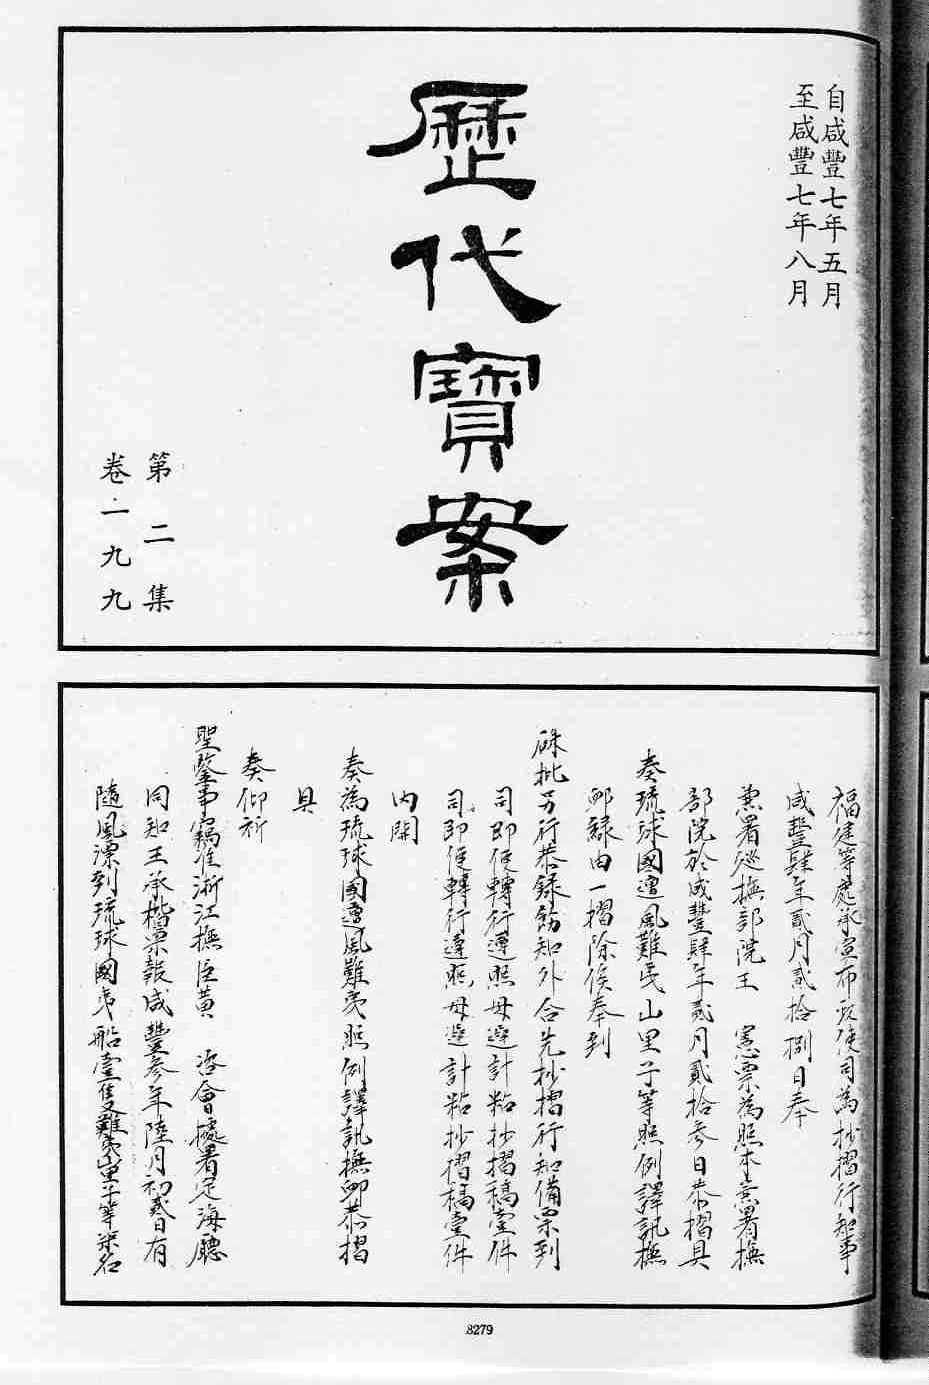 自咸豐七年五月
至咸豐七年八月
歷代寶案
第二集
卷一九九
福建等處承宣布政使司為抄摺行知事
咸豐肆年貳月貳拾捌日奉
兼署巡撫部院王 憲票為照本兼署撫
部院於咸豐肆年貳月貳拾參日恭摺具
奏琉球國遭風難民山里子等照例譯訊撫
卹緣由一摺除俟奉到
硃批另行恭錄飭知外合先抄摺行知備票到
司即便轉行遵照毋違計粘抄摺稿壹件
司即便轉行遵照毋違計粘抄摺稿壹件
內開
奏為琉球國遭風難夷照例譯訊撫卹恭摺
具
奏仰祈
聖鑒事竊准浙江撫臣黃 咨會據署定海廳
同知王承楷稟報咸豐參年陸月初貳日有
隨風漂到琉球國夷船壹隻難夷山里子等柒名
3279